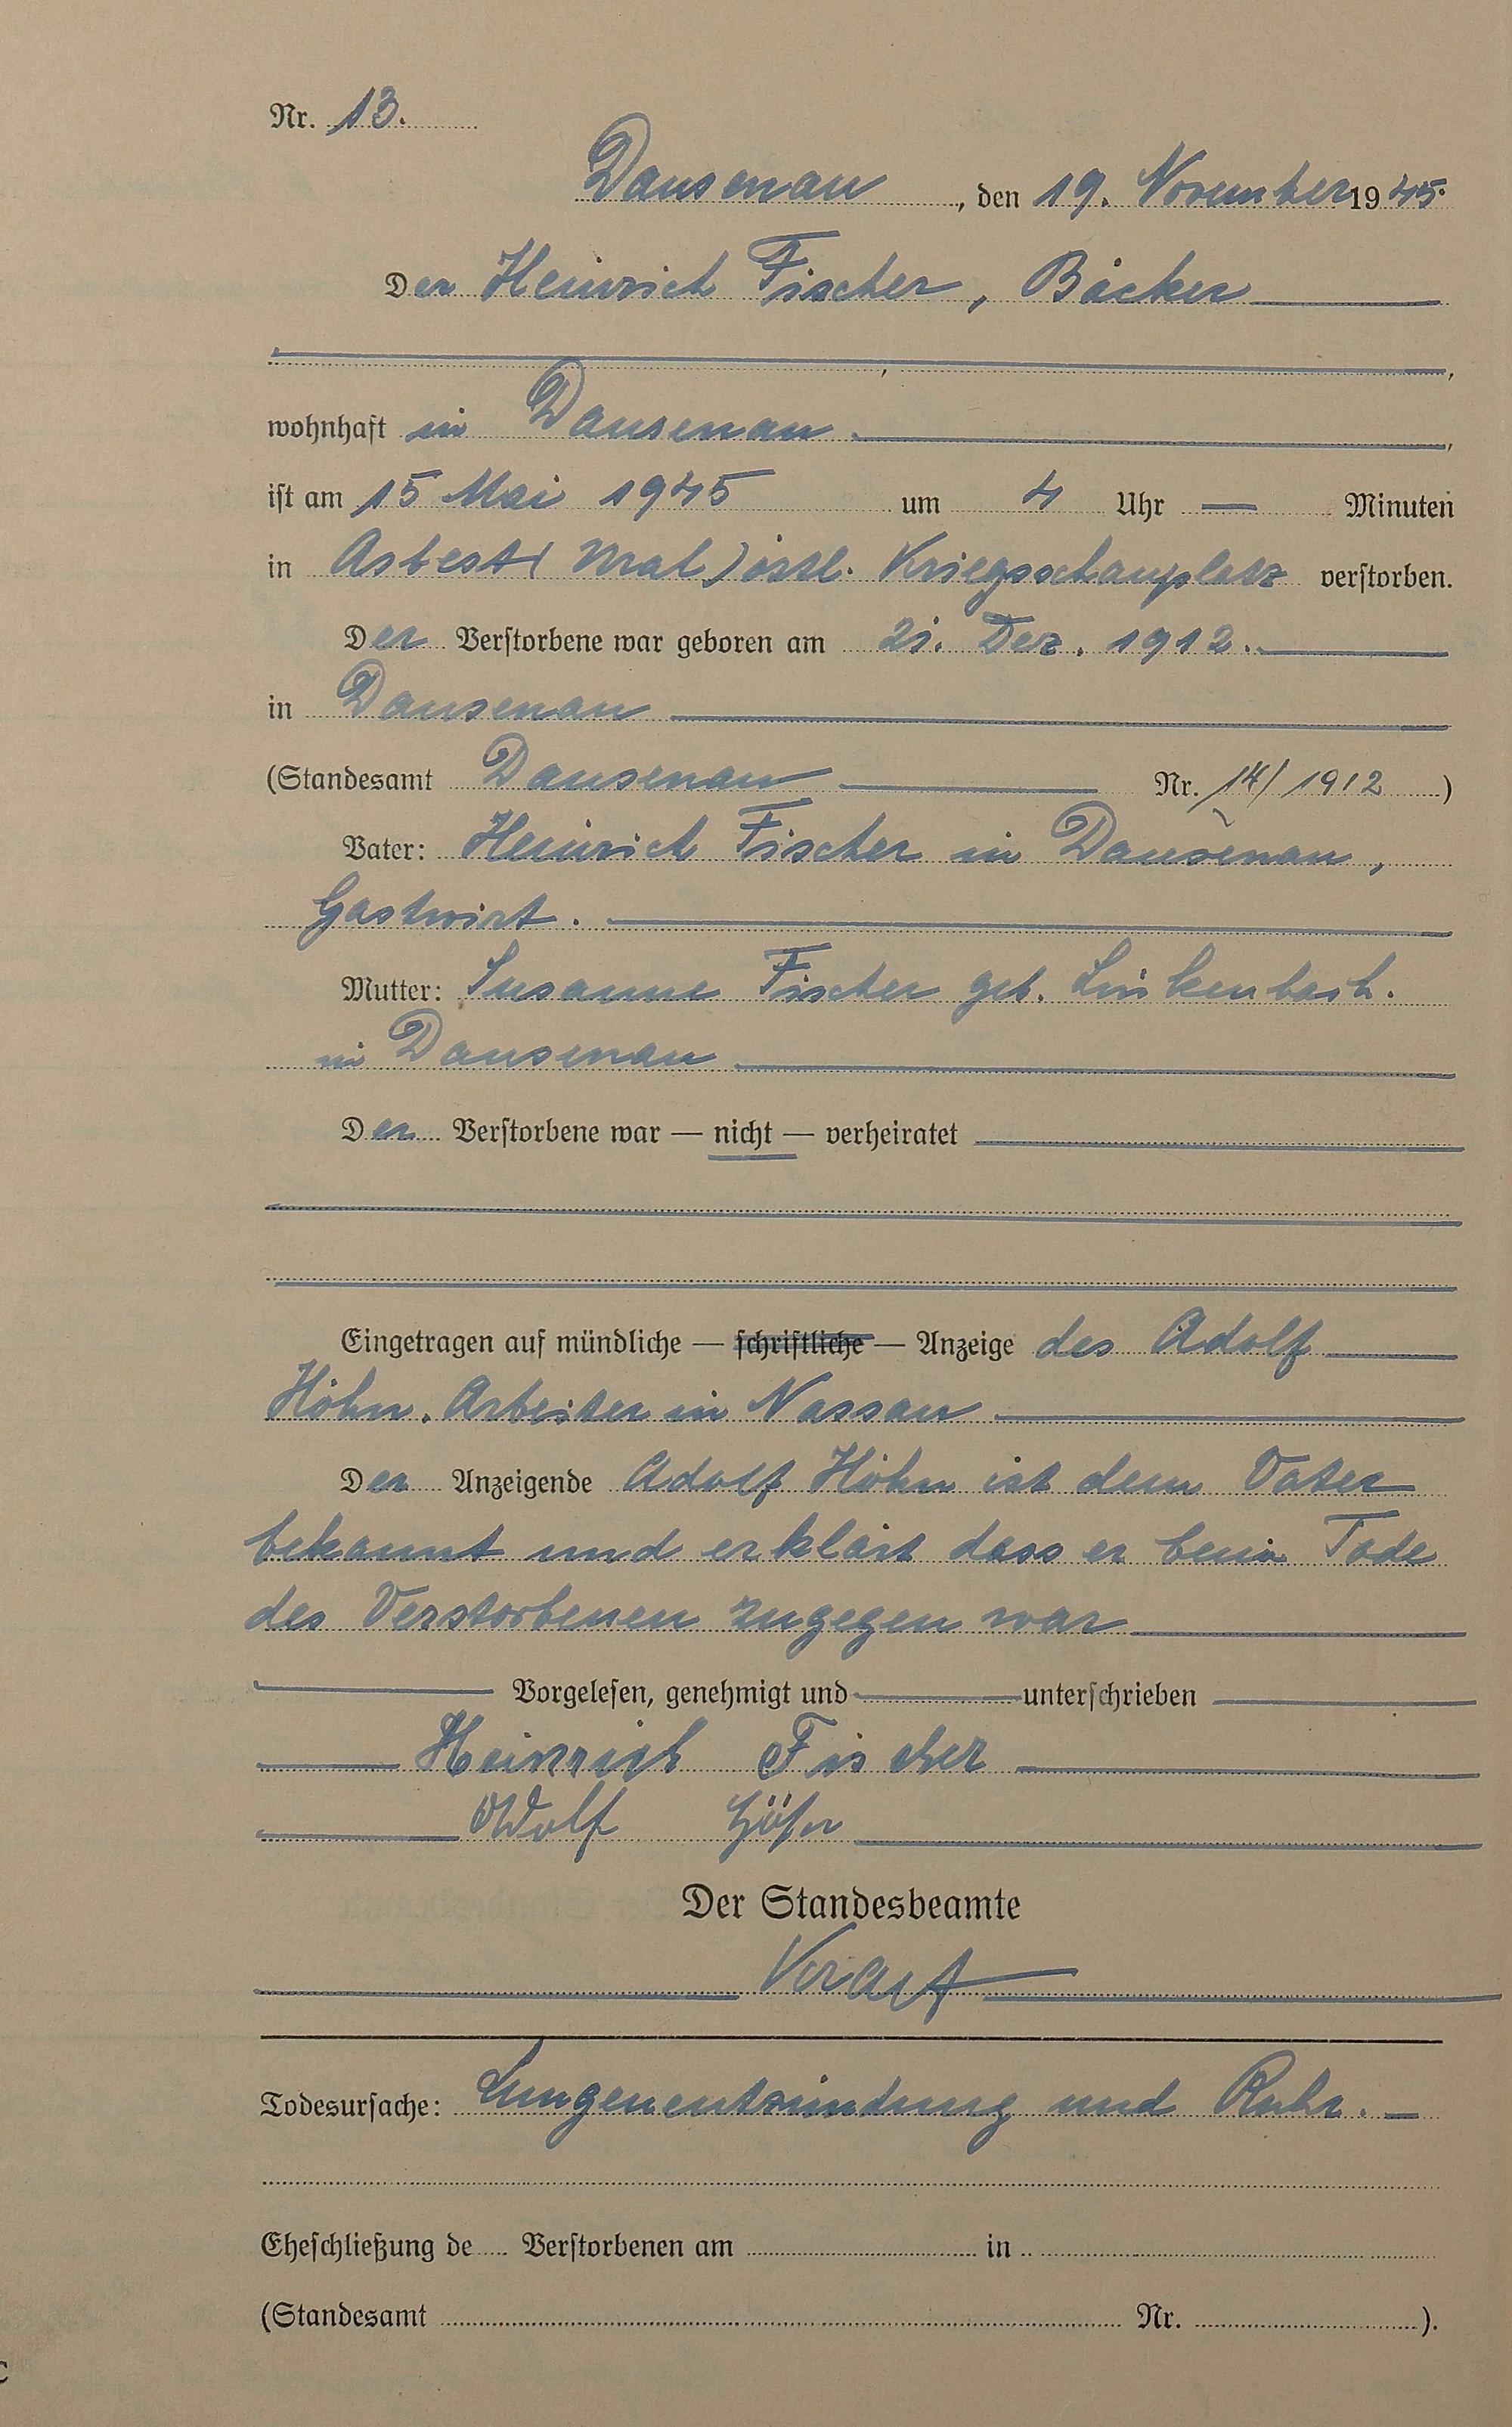 Nr. 13.
Dausenau, den 19. November 1945.
Der Heinrich Fischer, Bäcker
wohnhaft in Dausenau,
ist am 15 Mai 1945 um 4 Uhr — Minuten
in Asbest (Ural) östl. Kriegsschauplatz verstorben.
Der Verstorbene war geboren am 21. Dez. 1912.
in Dausenau
(Standesamt Dausenau Nr. 14/1912)
Vater: Heinrich Fischer in Dausenau,
Gastwirt.
Mutter: Susanne Fischer geb. Linkenbach.
in Dausenau
Der Verstorbene war — nicht — verheiratet
Eingetragen auf mündliche — schriftliche — Anzeige des Adolf
Höhn. Arbeiter in Nassau
Der Anzeigende Adolf Höhn ist dem Vater
bekannt und erklärt dass er beim Tode
des Verstorbenen zugegen war
Vorgelesen, genehmigt und unterschrieben
Heinrich Fischer
Adolf Höhn
Der Standesbeamte
Todesursache: Lungenentzündung und Ruhr. —
Eheschließung de Verstorbenen am in
(Standesamt Nr. ).